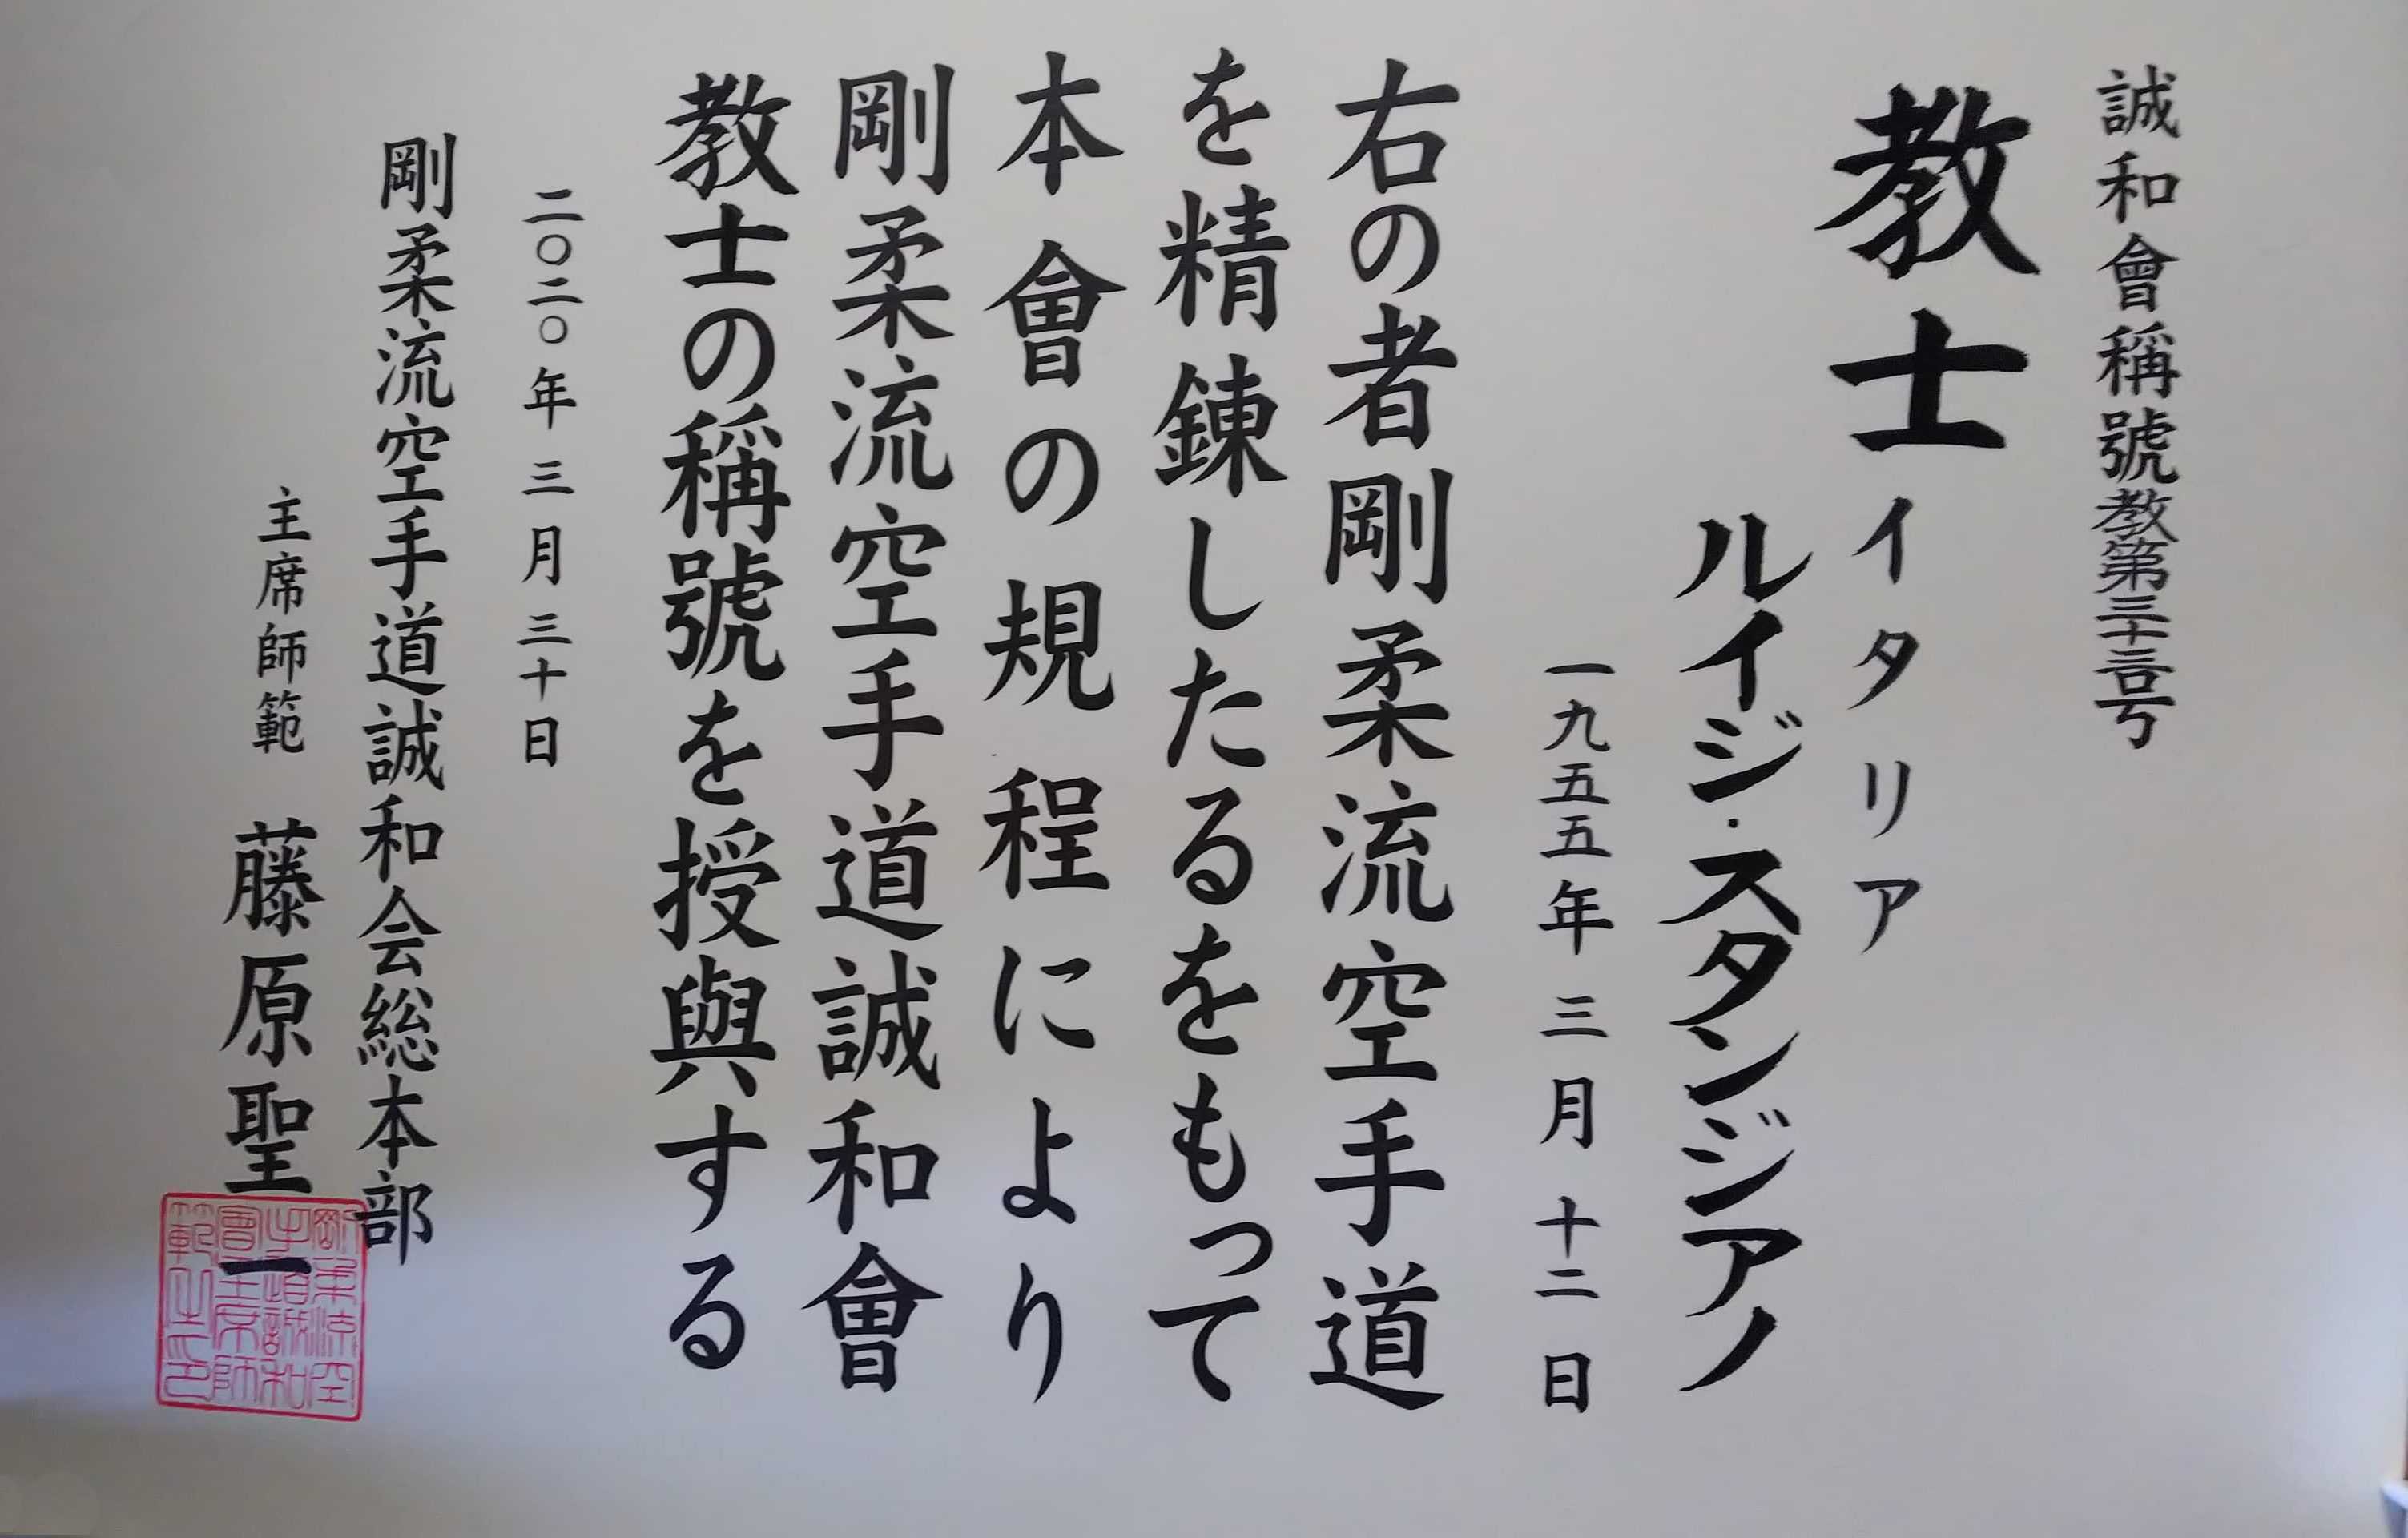 誠和會稱號教第三十三号
教士
イタリア
ルイジ・スタンジアノ
一九五五年三月十二日
右の者剛柔流空手道
を精錬したるをもって
本會の規程により
剛柔流空手道誠和會
教士の稱號を授與する
二〇二〇年三月三十日
剛柔流空手道誠和会総本部
主席師範 藤原聖一
剛柔流空
手道誠和
會主席師
範之印